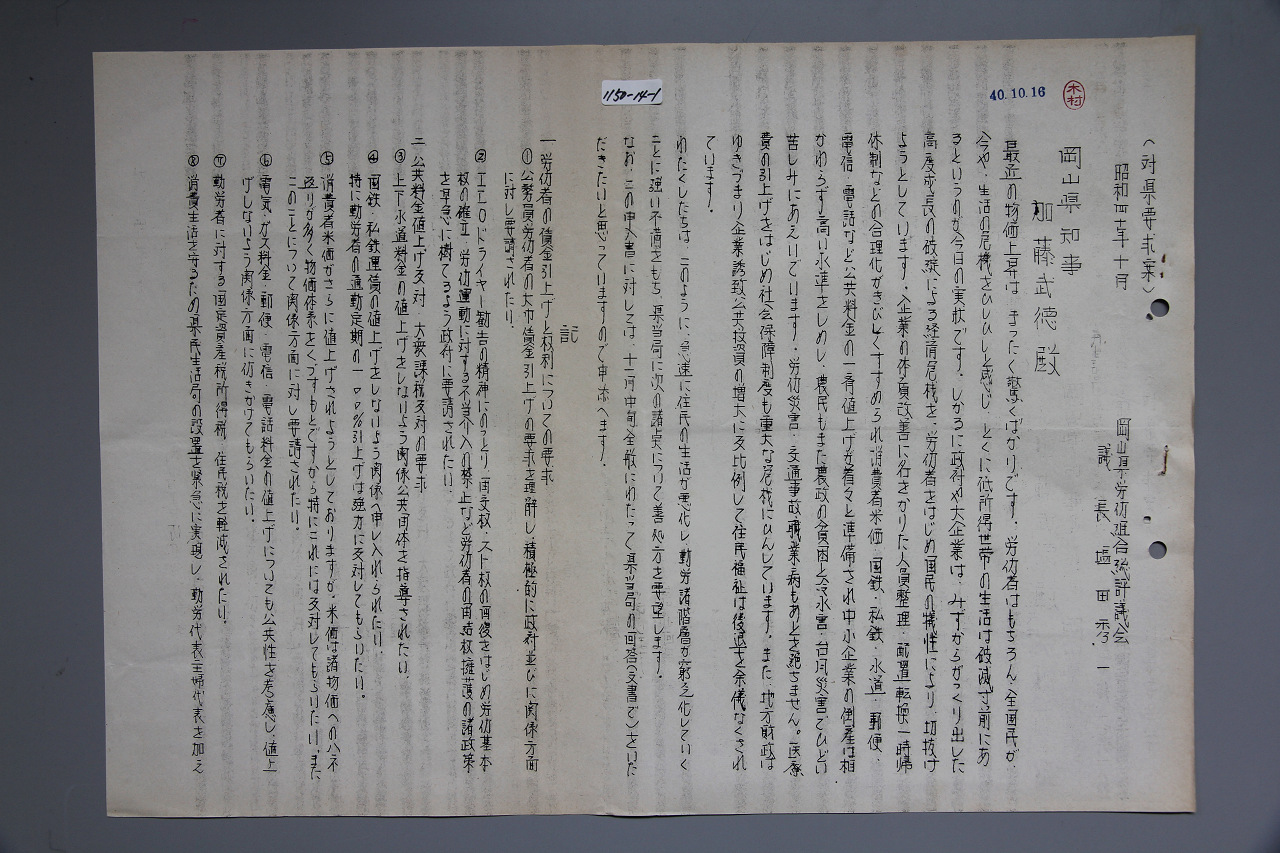 1150-14-1
40.10.16
木村
(対県要求案)
昭和四十年十月
岡山県労仂組合総評議会
議長 塩田秀一
岡山県知事
加藤武徳殿
最近の物価上昇は、まったく驚くばかりです。労仂者はもちろん、全国民が、
今や、生活の危機をひしひしと感じ、とくに低所得世帯の生活は破滅寸前にあ
るというのが今日の実状です。しかるに政府や大企業は、みずからがつくり出した
高度成長の破綻による経済危機を、労仂者をはじめ国民の犠牲により、切抜け
ようとしています。企業の体質改善に名をかりた人員整理・配置転換・一時帰
休制などの合理化がきびしくすすめられ消費者米価・国鉄・私鉄・水道・郵便・
電信・電話など公共料金の一斉値上げが着々と準備され中小企業の倒産は相
かわらず高い水準をしめし、農民もまた農政の貧困と冷水害・台風災害でひどい
苦しみにあえいでいます。労仂災害・交通事故、職業病もあとを絶ちません。医療
費の引上げをはじめ社会保障制度も重大な危機にひんしています。また、地方財政は
ゆきづまり企業誘致公共投資の増大に反比例して住民福祉は後退を余儀なくされ
ています。
わたくしたちは、このように、急速に住民の生活が悪化し、勤労諸階層が窮乏化していく
ことに強い不満をもち、県当局に次の諸実について善処方を要望します。
なお、この申入書に対しては、十一月中旬全般にわたって県当局の回答(文書で)をいた
だきたいと思っていますので申添へます。
記
一 労仂者の賃金引上げと権利についての要求
① 公務員労仂者の大巾賃金引上げの要求を理解し、積極的に政府並びに関係方面
に対し要請されたい。
② ILOドライヤー勧告の精神にのっとり、団交权、スト权の回復をはじめ労仂基本
权の確立、労仂運動に対する不当介入の禁止など労仂者の団結权擁護の諸政策
を早急に樹てるよう政府に要請されたい。
二 公共料金値上げ反対・大衆課税反対の要求
③ 上下水道料金の値上げをしないよう関係公共団体を指導されたい。
④ 国鉄・私鉄運賃の値上げをしないよう関係へ申し入れられたい。
特に勤労者の通勤定期の一〇〇%引上げは強力に反対してもらいたい。
⑤ 消費者米価がさらに値上げされようとしておりますが、米価は諸物価へのハネ
返りが多く物価体系をくづすもとですから特にこれには反対してもらいたいし、また
このことについて関係方面に対し要請されたい。
⑥ 電気・ガス料金・郵便・電信・電話料金の値上げについても公共性を考慮し、値上
げしないよう関係方面に仂きかけてもらいたい。
⑦ 勤労者に対する固定資産税所得税・住民税を軽減されたい。
⑧ 消費生活を守るため県民生活局の設置を緊急に実現し、勤労代表主婦代表を加え